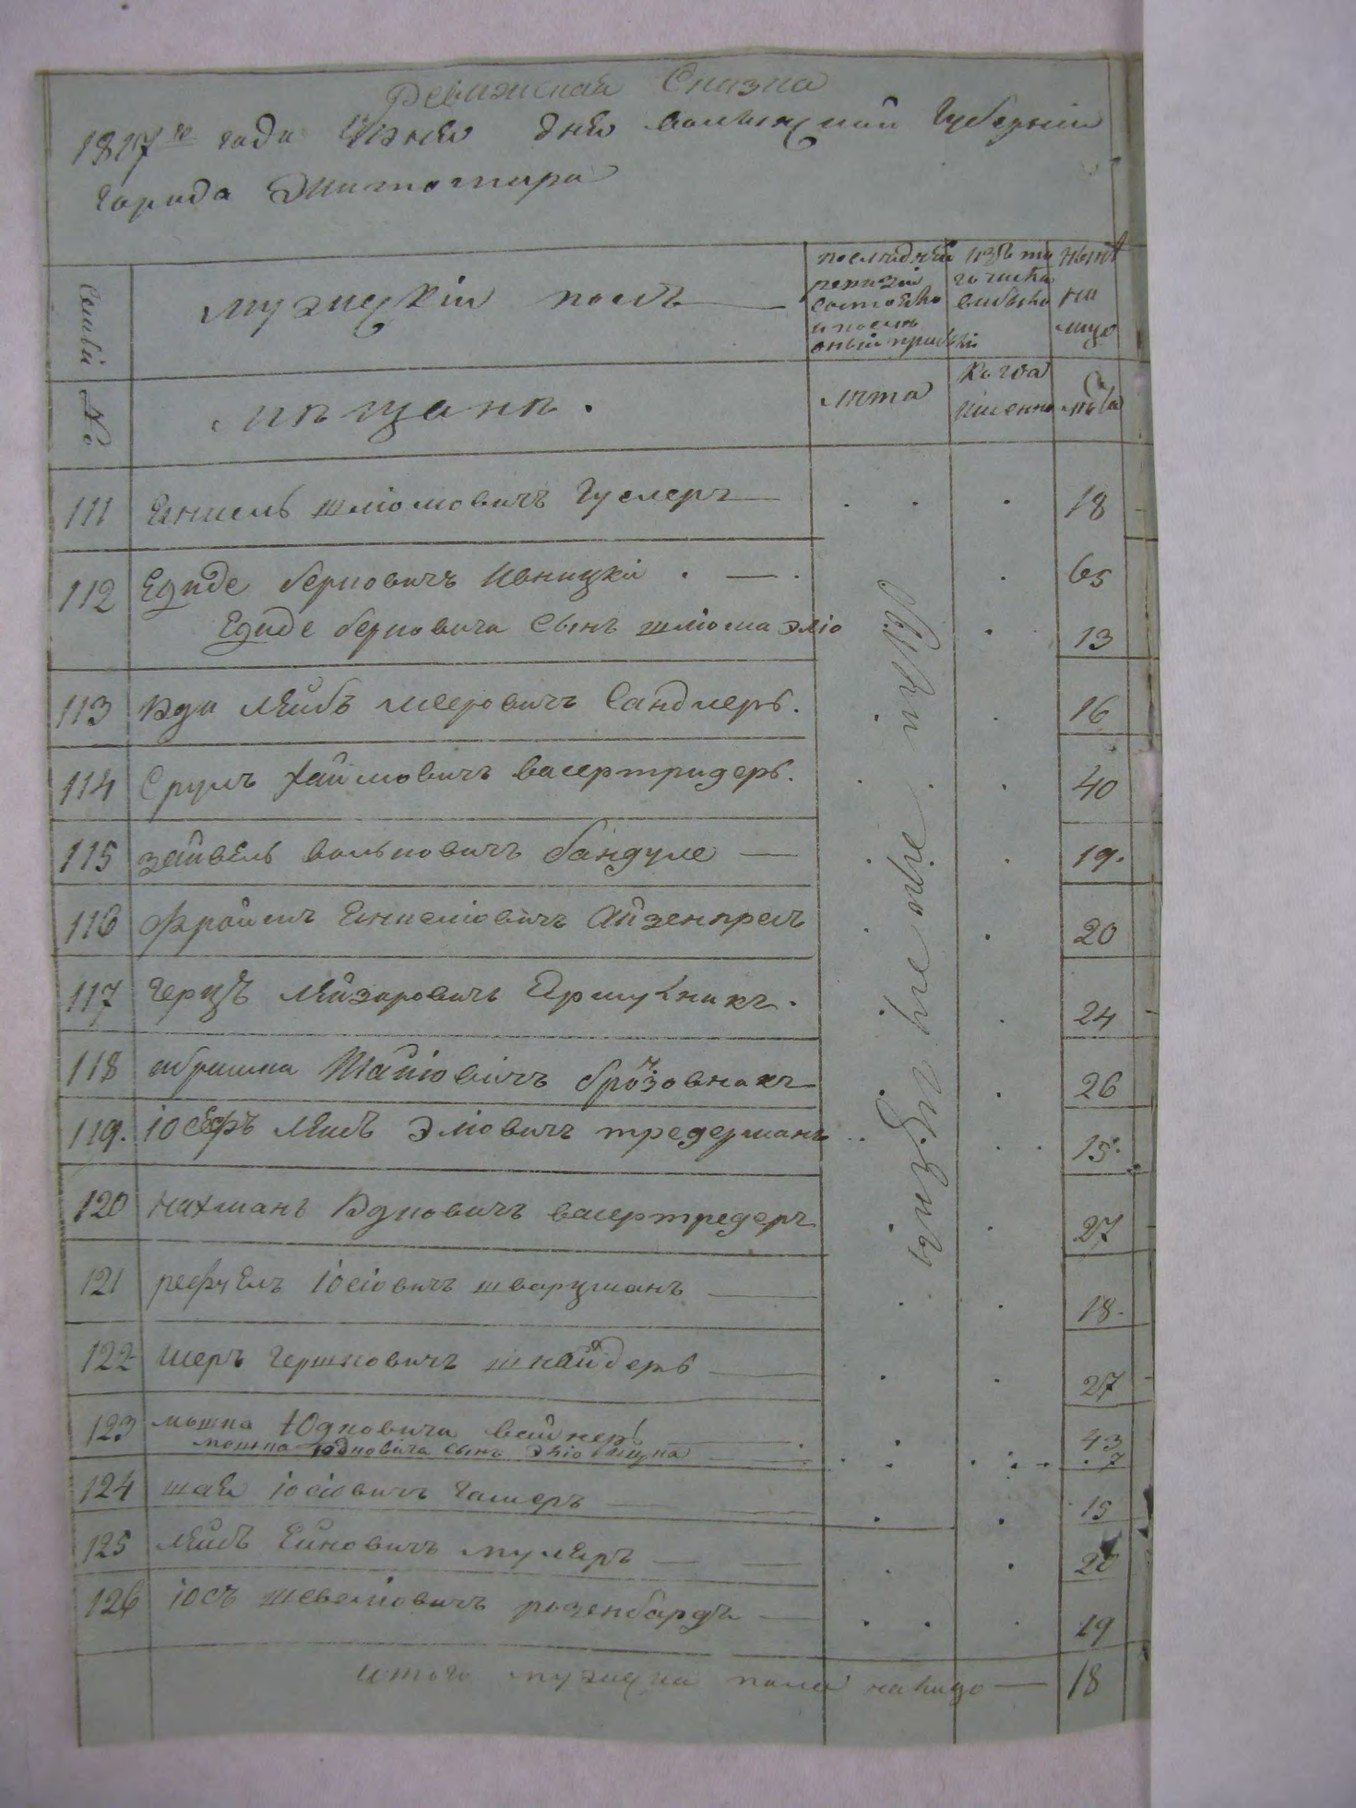 Ревижская Сказка
1817го года Июня дня волынской Губернии
города Житомира
Семьи №
мужескій полъ
последней ревизіи состояло и послѣ оный прибыли
изъ того числа выбыло
ныне на лицо
мѣщане.
лѣта
когда именно
лѣта
111 Енкель шліомовичъ Гуслеръ 18
112 Едиде берковичъ Ивницкій 65
Едиде берковича сынъ шліома эліо 13
113 Юда лейбъ мееровичъ Сандлеръ. 16
114 Срулъ хаймовичъ васертридеръ. 40
115 зейвель вольковичъ бандуле 19.
116 Фроимъ Енкеліовичъ Айзенкремъ 20
117 герцъ лейзеровичъ 24
118 абрашка Шапіовичъ брозовникъ 26
119. іосефъ лейбъ эліовичъ тредерманъ 15.
120 нахманъ Юдковичъ васертредеръ 27
121 рефуелъ іосіовичъ шварцманъ 18.
122 меръ гершковичъ шнайдеръ 27
123 мошка Юдковича вайнеръ 43
мошка юдковича сынъ эліо 7
124 шая іосіовичъ Гамеръ 15
125 лейбъ Ейновичъ мулеръ 20
126 іосъ шевеліовичъ розенбардъ 19
итого мужеска пола на лицо 18